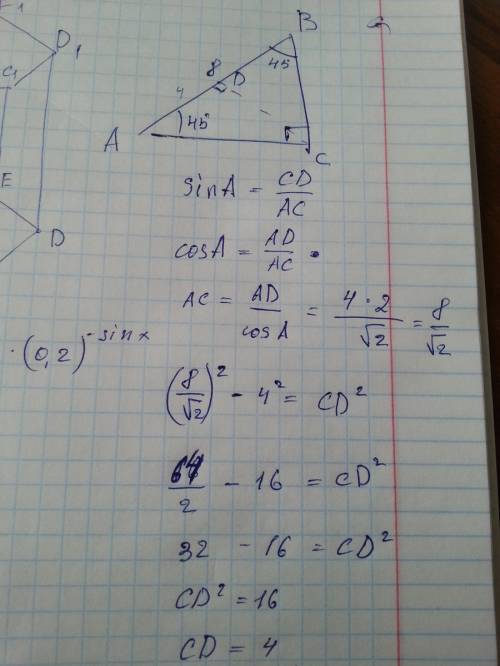 B
8 D
45
4
45°
A
C
D1
C1
E
D
sin A = CD/AC
cos A = AD/AC
AC = AD/cos A = 4·2/√2 = 8/√2
·(0,2)^-sin x
(8/√2)² - 4² = CD²
64/2 - 16 = CD²
32 - 16 = CD²
CD² = 16
CD = 4